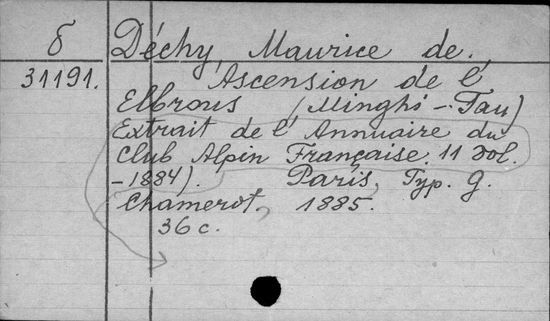 б Déchy, Maurice de.
31191. Ascension de l'
Elbrous (Minghi-Tau)
Extrait de l'Annuaire du
Club Alpin Française. 11 vol.
-1884). Paris, Typ. G.
Chamerot, 1885.
36 c.